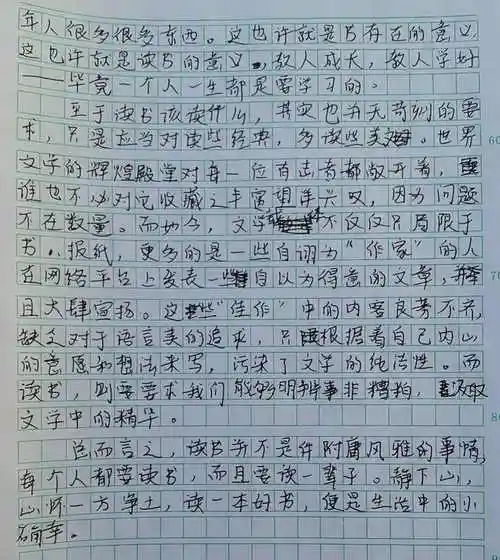 年人很多很多东西。这也许就是书存在的意义,
这也许就是读书的意义。教人成长,教人学好
——毕竟一个人一生都是要学习的。
至于读书该读什么,其实也并无苛刻的要
求,只是应当对读些经典,多读些美文。世界
60
文学的辉煌殿堂对每一位有志者都敞开着,
谁也不必对它收藏之丰富望洋兴叹,因为问题
不在数量。而如今,文学不仅仅只局限于
书、报纸,更多的是一些自诩为“作家”的人
在网络平台上发表一些自以为得意的文章,并
70
且大肆宣扬。这些“佳作”中的内容良莠不齐,
缺乏对于语言美的追求,只根据着自己内心
的意愿和想法来写,污染了文学的纯洁性。而
读书,则要要求我们能够明辨事非糟粕,汲取
文学中的精华。
80
总而言之,读书并不是件附庸风雅的事情,
每个人都要读书,而且要读一辈子。静下心,
心怀一方净土,读一本好书,便是生活中的小
确幸。